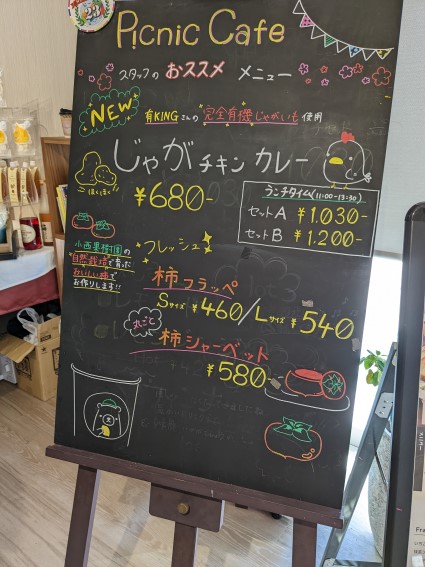 Picnic Cafe
スタッフの おススメ メニュー
NEW
有KINGさんの "完全有機じゃがいも" 使用
じゃがチキンカレー
ほくほく
¥680-
ランチタイム(11:00-13:30)
セットA ¥1.030-
セットB ¥1.200-
小西果樹園の
"自然栽培"で育った
おいしい柿で
お作りします!!
フレッシュ
柿フラッペ
Sサイズ ¥460/Lサイズ ¥540
丸ごと
柿シャーベット
¥580-